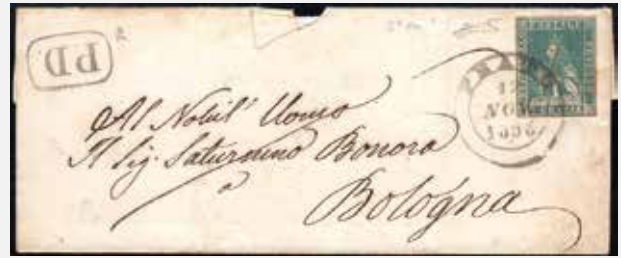 P.D.
12
NOV
1856
Al Nobil' Uomo
Il Sig. Saturnino Bonora
a
Bologna